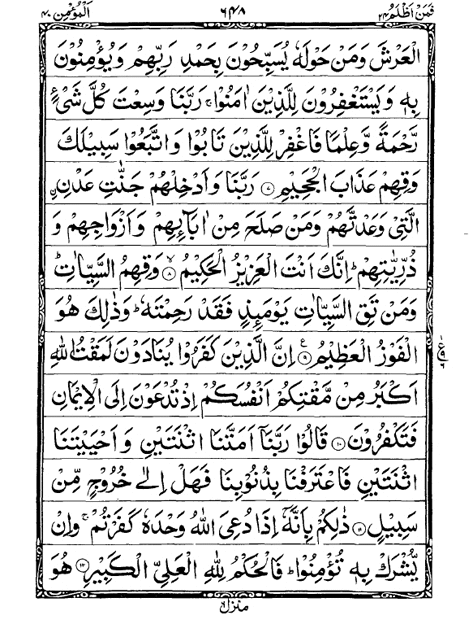 فمن اظلم ٢٤ ٦٤٨ المؤمن ٤٠
الْعَرْشَ وَمَنْ حَوْلَهٗ يُسَبِّحُوْنَ بِحَمْدِ رَبِّهِمْ وَيُؤْمِنُوْنَ
بِهٖ وَيَسْتَغْفِرُوْنَ لِلَّذِيْنَ اٰمَنُوْا ۚ رَبَّنَا وَسِعْتَ كُلَّ شَيْءٍ
رَّحْمَةً وَّعِلْمًا فَاغْفِرْ لِلَّذِيْنَ تَابُوْا وَاتَّبَعُوْا سَبِيْلَكَ
وَقِهِمْ عَذَابَ الْجَحِيْمِ ۝٧ رَبَّنَا وَاَدْخِلْهُمْ جَنّٰتِ عَدْنِ ۨ
الَّتِيْ وَعَدْتَّهُمْ وَمَنْ صَلَحَ مِنْ اٰبَآئِهِمْ وَاَزْوَاجِهِمْ وَ
ذُرِّيّٰتِهِمْ ؕ اِنَّكَ اَنْتَ الْعَزِيْزُ الْحَكِيْمُ ۝٨ وَقِهِمُ السَّيِّاٰتِ ؕ
وَمَنْ تَقِ السَّيِّاٰتِ يَوْمَئِذٍ فَقَدْ رَحِمْتَهٗ ؕ وَذٰلِكَ هُوَ
الْفَوْزُ الْعَظِيْمُ ۝٩ اِنَّ الَّذِيْنَ كَفَرُوْا يُنَادَوْنَ لَمَقْتُ اللّٰهِ
اَكْبَرُ مِنْ مَّقْتِكُمْ اَنْفُسَكُمْ اِذْ تُدْعَوْنَ اِلَى الْاِيْمَانِ
فَتَكْفُرُوْنَ ۝١٠ قَالُوْا رَبَّنَآ اَمَتَّنَا اثْنَتَيْنِ وَاَحْيَيْتَنَا
اثْنَتَيْنِ فَاعْتَرَفْنَا بِذُنُوْبِنَا فَهَلْ اِلٰى خُرُوْجٍ مِّنْ
سَبِيْلٍ ۝١١ ذٰلِكُمْ بِاَنَّهٗٓ اِذَا دُعِيَ اللّٰهُ وَحْدَهٗ كَفَرْتُمْ ۚ وَاِنْ
يُّشْرَكْ بِهٖ تُؤْمِنُوْا ؕ فَالْحُكْمُ لِلّٰهِ الْعَلِيِّ الْكَبِيْرِ ۝١٢ هُوَ